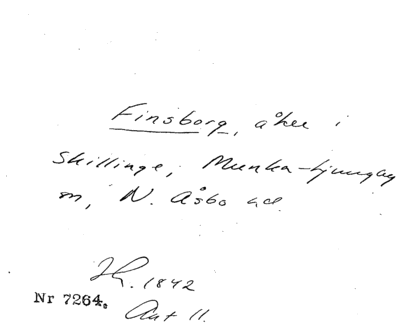 Finsborg, åker i
Skillinge, Munka-Ljungby
sn, N. Åsbo hd.
1842
Nr 7264. Akt 11.